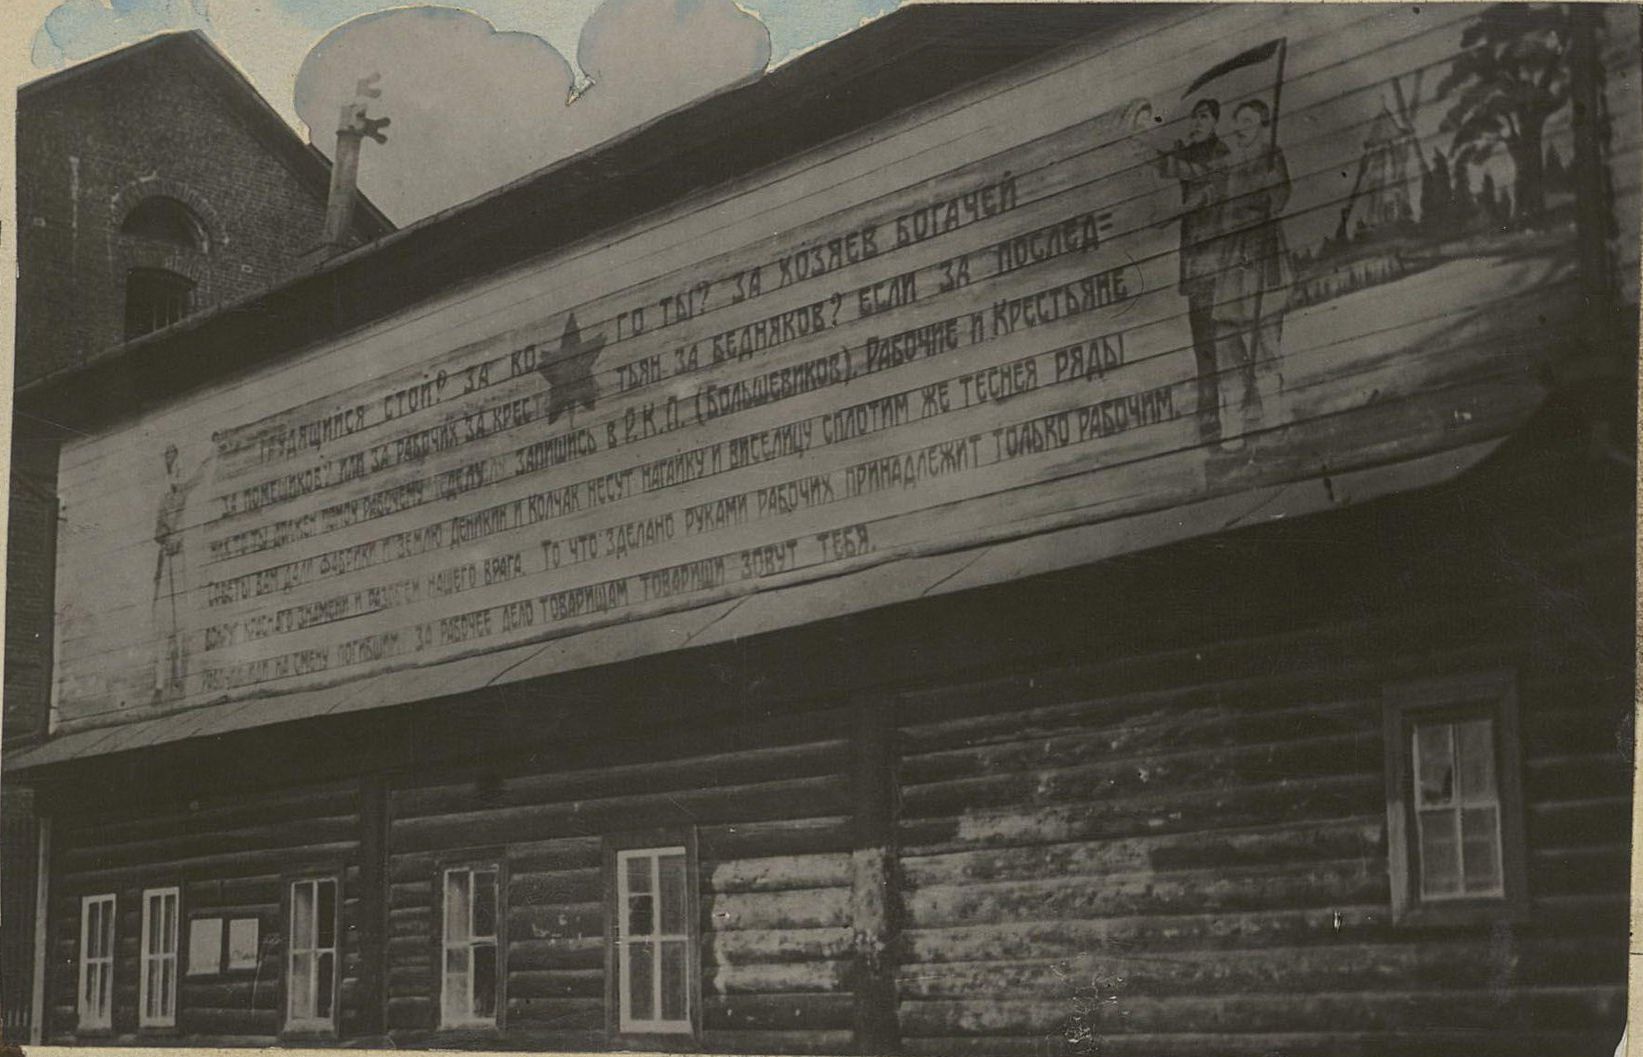 ТРУДЯЩИЙСЯ СТОЙ? ЗА КО ГО ТЫ? ЗА ХОЗЯЕВ БОГАЧЕЙ
ЗА ПОМЕЩИКОВ? ИЛИ ЗА РАБОЧИХ ЗА КРЕСТ ТЬЯН ЗА БЕДНЯКОВ? ЕСЛИ ЗА ПОСЛЕД=
НИХ ТО ТЫ ДОЛЖЕН ПОМОЧ РАБОЧЕМУ ДЕЛУ. ЗАПИШИСЬ В Р.К.П. (БОЛЬШЕВИКОВ). РАБОЧИЕ И КРЕСТЬЯНЕ
СОВЕТЫ ВАМ ДАЛИ ФАБРИКИ И ЗЕМЛЮ ДЕНИКИН И КОЛЧАК НЕСУТ НАГАЙКУ И ВИСЕЛИЦУ СПЛОТИМ ЖЕ ТЕСНЕЯ РЯДЫ
ВОКРУГ КРАСНАГО ЗНАМЕНИ И РАЗОБЕМ НАШЕГО ВРАГА. ТО ЧТО ЗДЕЛАНО РУКАМИ РАБОЧИХ ПРИНАДЛЕЖИТ ТОЛЬКО РАБОЧИМ.
РАБОЧИЙ ИДИ НА СМЕНУ ПОГИБШИМ ЗА РАБОЧЕЕ ДЕЛО ТОВАРИЩАМ ТОВАРИЩИ ЗОВУТ ТЕБЯ.